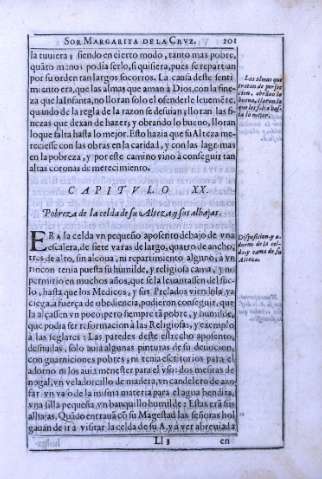 SOR MARGARITA DE LA CRVZ. 201
la tuuiera; siendo en cierto modo, tanto mas pobre,
quāto menos podia serlo, si quisiera, pues se repartian
por su orden tan largos socorros. La causa deste senti
miento era, que las almas que aman a Dios, con la fine
za que la Infanta, no lloran solo el ofenderle leuemēte,
quando de la regla de la razon se desuian; lloran las fi-
nezas que dexan de hazer, y obrando lo bueno, lloran
lo que falta hasta lo mejor. Esto hazia que su Alteza me
reciesse con las obras en la caridad, y con las lagrimas
en la pobreza, y por este camino vino à conseguir tan
altas coronas de merecimiento.
Las almas que
tratan de perfec
cion, obrādo lo
bueno, lloran lo
que les falta has
ta lo mejor.
CAPITVLO XX.
Pobreza de la celda de su Alteza, y sus alhajas.
ERa la celda vn pequeño aposento debajo de vna
escalera, de siete varas de largo, quatro de ancho,
tres de alto, sin alcoua, ni repartimiento alguno, à vn
rincon tenia puesta su humilde, y religiosa cama, y no
permitio en muchos años, que se la leuantassen del sue
lo, hasta que los Medicos, y sus Prelados viendola ya
ciega, à fuerça de obediencia, pudieron conseguir, que
la alçassen vn poco; pero siempre tā pobre, y humilde,
que podia ser reformacion à las Religiosas, y exemplo
à las seglares: Las paredes deste estrecho aposento,
desnudas, solo auia algunas pinturas de su deuocion,
con guarniciones pobres; ni tenia escritorios para el
adorno ni los auia menester para el vso: dos mesitas de
nogal, vn velador cillo de madera, vn candelero de aço
far, vn vaso de la misma materia para el agua bendita,
vna silla pequeña, vn banquillo humilde: Estas erā sus
alhajas. Quādo entraua cō su Magestad las señoras hol
gauan de ir à visitar la celda de su A. y à ver abreuiada
Disposicion, y a-
dorno de la cel-
da, y cama de su
Alteza.
Ll 3 en